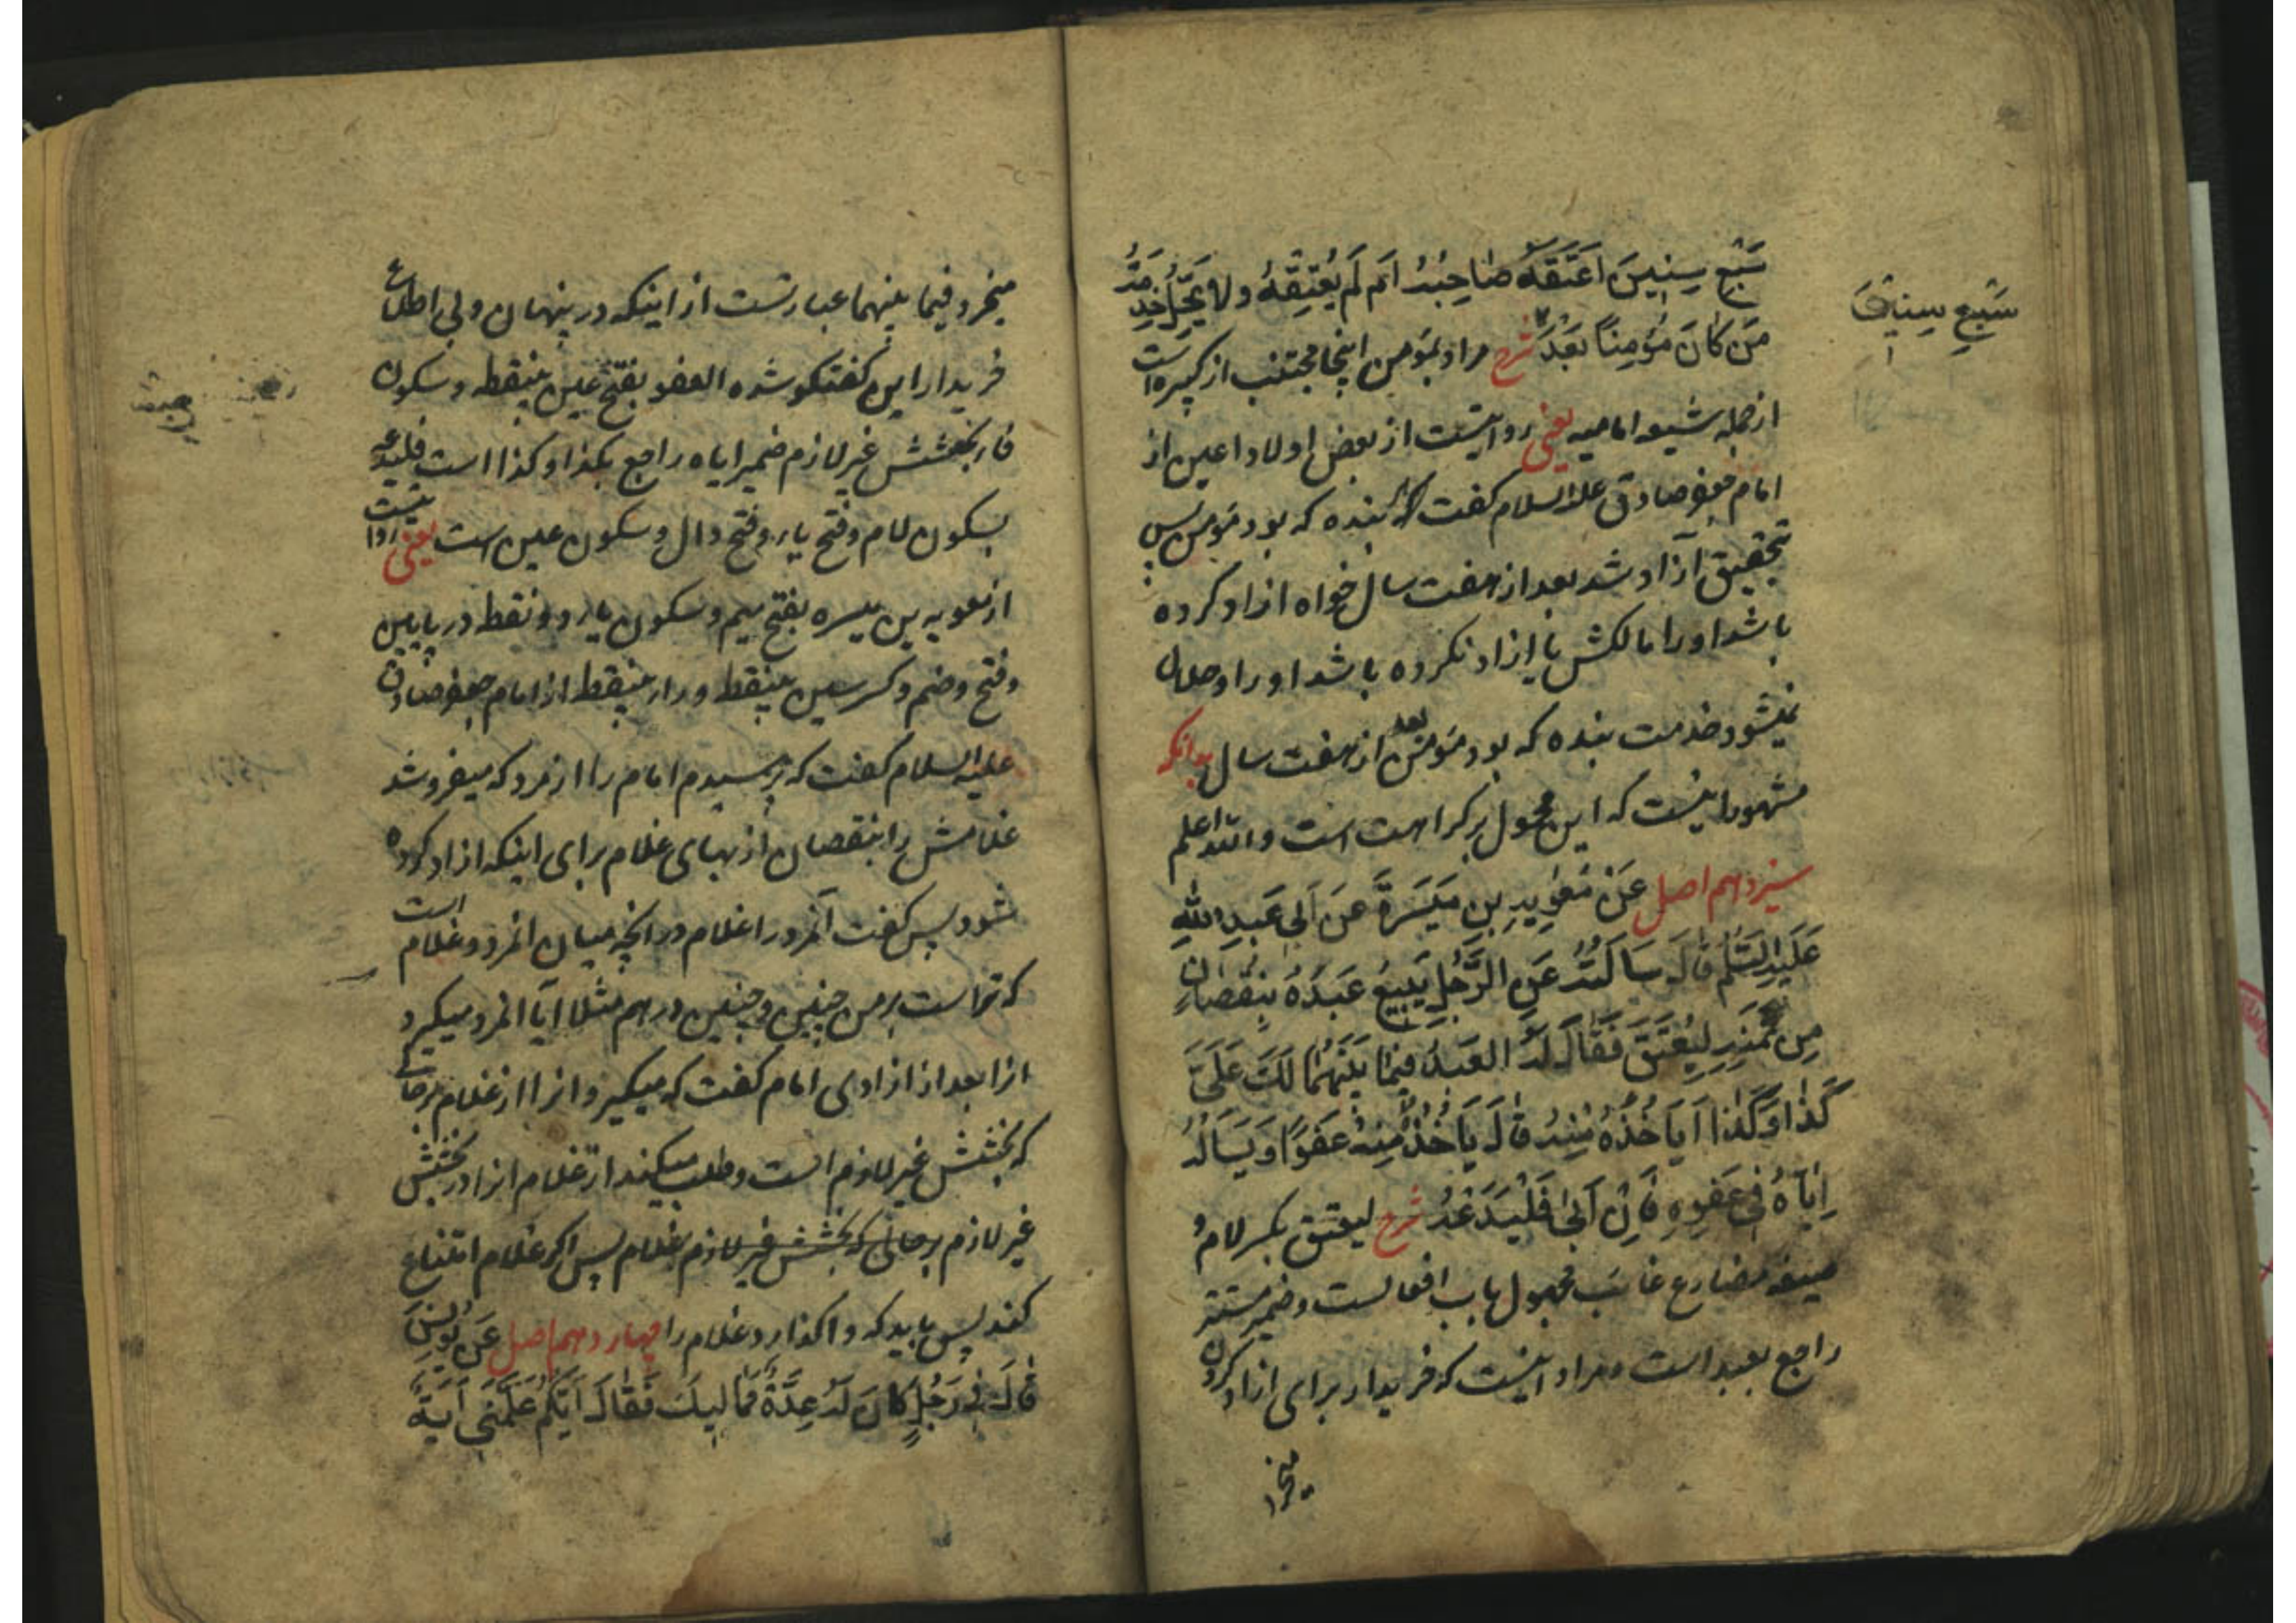 سَبْعِ سِنِینَ اَعْتَقَهُ صَاحِبُهُ اَمْ لَمْ یُعْتِقْهُ وَلَا یَحِلُّ خِدْمَةُ
مَنْ کَانَ مُؤْمِنًا بَعْدَ شرح مراد بمؤمن اینجا مجتنب از کبیره است
از جمله شیعه امامیه یعنی روایتست از بعض اولاد اعین از
امام جعفر صادق علیه السلام گفت هر بنده که بود مؤمن پس
بتحقیق آزاد شد بعد از هفت سال خواه ازاد کرده
باشد او را مالکش یا ازاد نکرده باشد او را و حلال
نمیشود خدمت بنده که بود مؤمن بعد از هفت سال بدانکه
مشهور اینست که این محمول بر کراهت است والله اعلم
سیزدهم اصل عَنْ مُعٰوِیَةِ بْنِ مَیْسَرَةَ عَنْ اَبِی عَبْدِ اللهِ
عَلَیْهِ السَّلٰمُ قَالَ سَاَلْتُهُ عَنِ الرَّجُلِ یَبِیعُ عَبْدَهُ بِنُقْصَانٍ
مِنْ ثَمَنِهِ لِیُعْتَقَ فَقَالَ لَهُ الْعَبْدُ فِیمَا بَیْنَهُمَا لَکَ عَلَیَّ
کَذَا وَکَذَا اَیَاْخُذُهُ مِنْهُ قَالَ یَاْخُذُهُ مِنْهُ عَفْوًا وَیَسْاَلُهُ
اِیَّاهُ فِی عَفْوِهِ فَاِنْ اَبٰی فَلْیَدَعْهُ شرح لیعتق بکسر لام و
صیغه مضارع غائب مجهول باب افعالست و ضمیر مستتر
راجع بعبد است و مراد اینست که خریدار برای ازاد کردن
میخرد
سَبْعِ سِنِینَ
میخرد فیما بینهما عبارتست از اینکه در پنهان و بی اطلاع
خریدار این گفتگو شده العفو بفتح عین بینقطه و سکون
فاء بخشش غیر لازم ضمیر ایاه راجع بکذا و کذا است فلیدعه
بسکون لام و فتح یاء و فتح دال و سکون عین است یعنی روایتست
از معویه بن میسره بفتح میم و سکون یاء دو نقطه در پایین
و فتح و ضم و کسر سین بینقطه و راء بینقطه از امام جعفر صادق
علیه السلام گفت که پرسیدم امام را از مرد که میفروشد
غلامش را بنقصان از بهای غلام برای اینکه ازاد کرده
شود پس گفت آنمرد را غلام در آنچه میان انمرد و غلام است
که تراست بر من چنین و چنین درهم مثلا آیا انمرد میگیرد
انرا بعد از ازادی امام گفت که میگیرد انرا از غلام برحالی
که بخشش غیر لازم است و طلب میکند از غلام انرا در بخشش
غیر لازم برحالی که بخشش غیر لازم غلام پس اگر غلام امتناع
کند پس باید که واگذارد غلام را چهاردهم اصل عَنْ یُونُسَ
قَالَ فِی رَجُلٍ کَانَ لَهُ عِدَّةُ مَمَالِیکَ فَقَالَ اَیُّکُمْ عَلَّمَنِی آیَةً